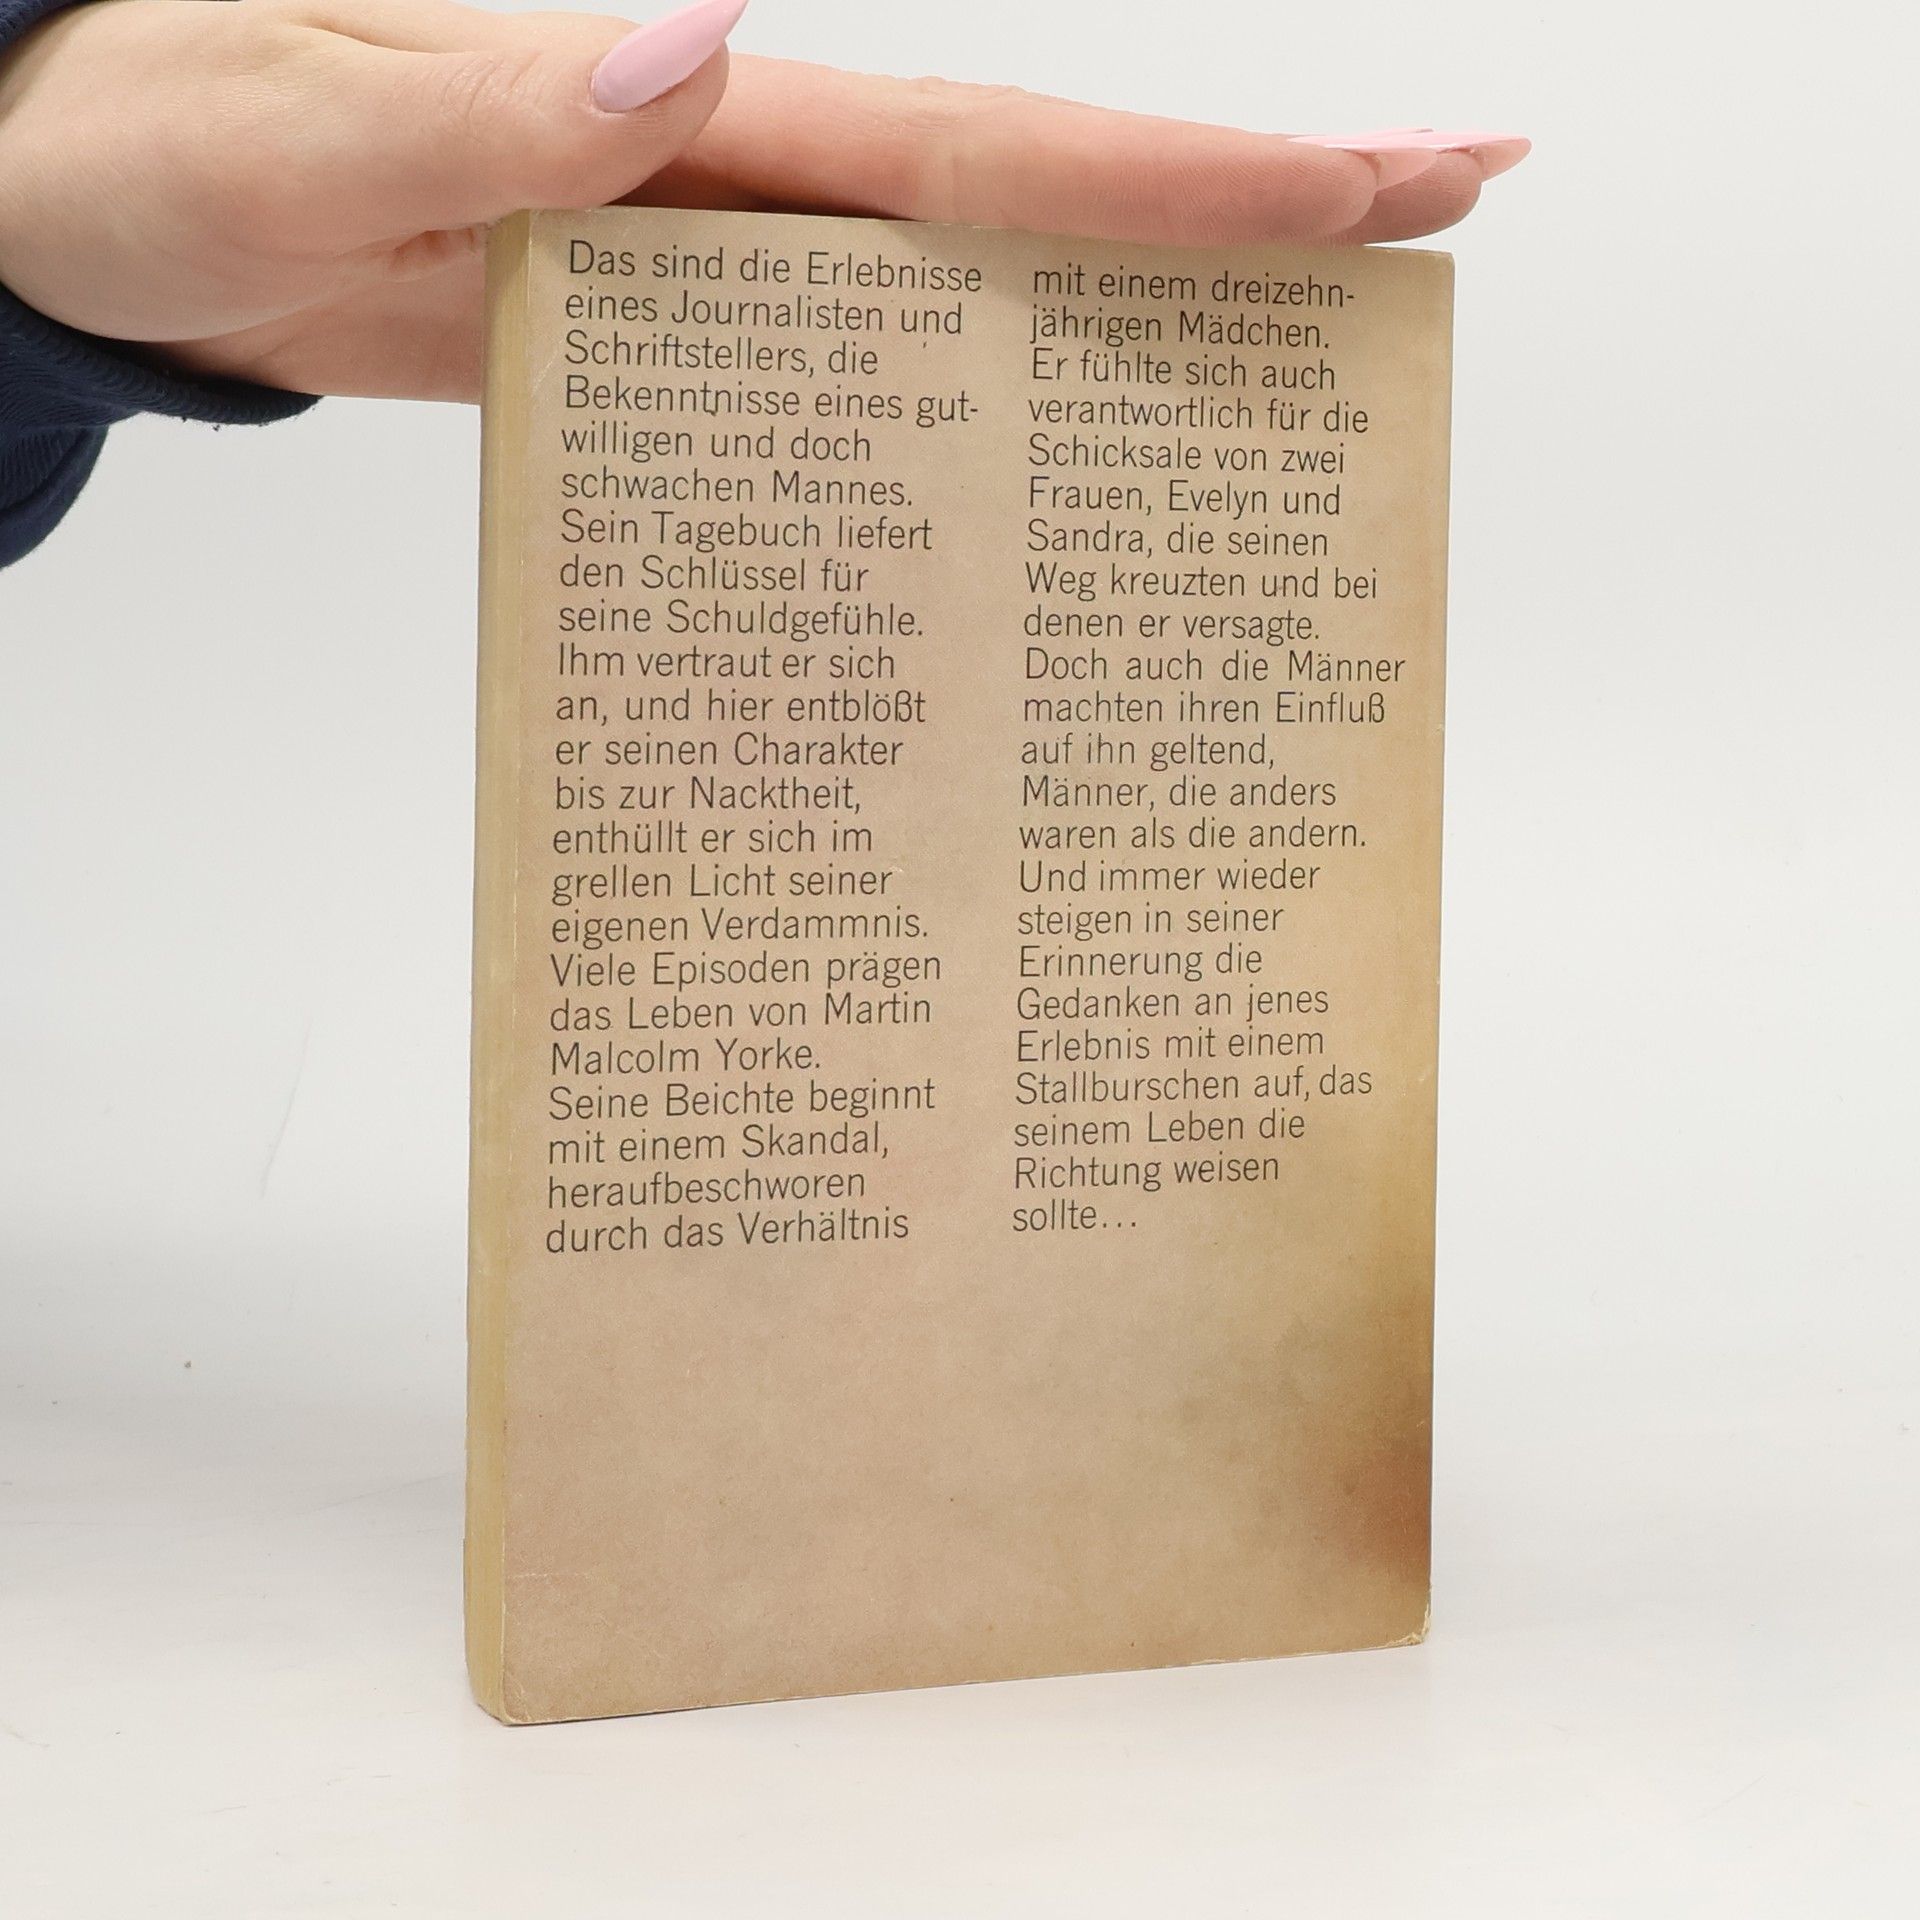 Das sind die Erlebnisse
eines Journalisten und
Schriftstellers, die
Bekenntnisse eines gut-
willigen und doch
schwachen Mannes.
Sein Tagebuch liefert
den Schlüssel für
seine Schuldgefühle.
Ihm vertraut er sich
an, und hier entblößt
er seinen Charakter
bis zur Nacktheit,
enthüllt er sich im
grellen Licht seiner
eigenen Verdammnis.
Viele Episoden prägen
das Leben von Martin
Malcolm Yorke.
Seine Beichte beginnt
mit einem Skandal,
heraufbeschworen
durch das Verhältnis
mit einem dreizehn-
jährigen Mädchen.
Er fühlte sich auch
verantwortlich für die
Schicksale von zwei
Frauen, Evelyn und
Sandra, die seinen
Weg kreuzten und bei
denen er versagte.
Doch auch die Männer
machten ihren Einfluß
auf ihn geltend,
Männer, die anders
waren als die andern.
Und immer wieder
steigen in seiner
Erinnerung die
Gedanken an jenes
Erlebnis mit einem
Stallburschen auf, das
seinem Leben die
Richtung weisen
sollte...